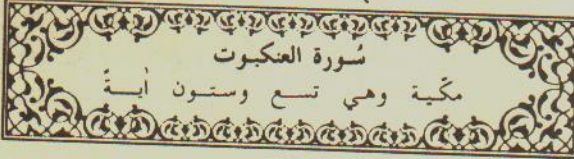 سُورة العنكبوت
مكّية وهي تسع وستون أيـةً